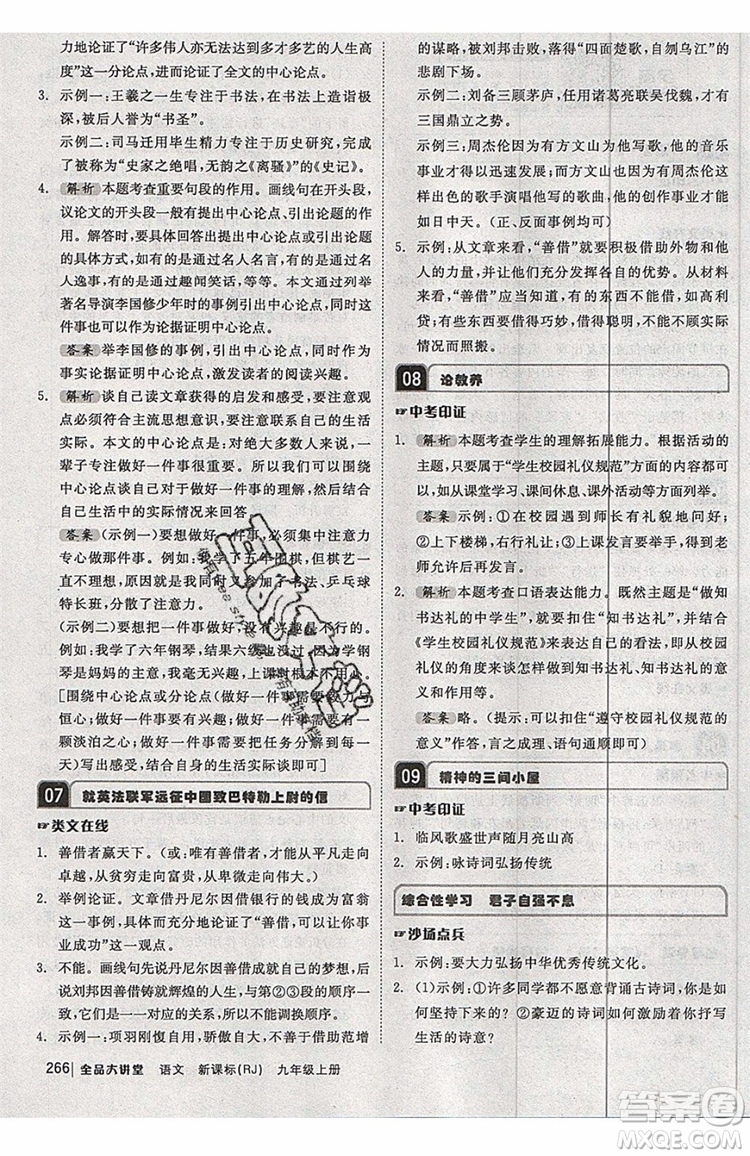 力地论证了“许多伟人亦无法达到多才多艺的人生高
度”这一分论点，进而论证了全文的中心论点。
3. 示例一：王羲之一生专注于书法，在书法上造诣极
深，被后人誉为“书圣”。
示例二：司马迁用毕生精力专注于历史研究，完成
了被称为“史家之绝唱，无韵之《离骚》”的《史记》。
4. 解析 本题考查重要句段的作用。画线句在开头段，
议论文的开头段一般有提出中心论点或引出中心论
点的作用。解答时，要具体来回答出提出或者引出
论点的具体方式，如有的是通过名人名言，有的通过
名人逸事，有的是通过趣闻笑话，等等。本文通过列举
著名导演李国修少年时的事例引出中心论点，同时这
件事可以作为论据证明中心论点。
答案 举李国修的事例，引出中心论点，并作为
事实论据论证中心论点，激发读者的阅读兴趣。
5. 解析 谈自己读文章获得的启发和感受，要注意观
点必须符合主流思想意识，要注意联系自己的生活
实际。本文的中心论点是：对绝大多数人来说，一
辈子专注于做好一件事就很不简单。所以我们可以围绕
中心论点谈自己对于做好一件事的理解和感受，结
合自己生活中的实际情况来回答。
答案 (示例一)要做好一件事，必须集中注意力
专心做那件事。例如：我学下了五年围棋，但棋艺一
直没有长进，就是因为我同时又参加了书法、乒乓球
特长班，分散了注意力。
(示例二)要做好一件事，没有兴趣是不行的。
例如：我学了六年钢琴，结果六级也没过，就是因为学
钢琴是妈妈的意思，我毫无兴趣，根本不用心。
[围绕中心论点或分论点(做好一件事需要毅力与
恒心；做好一件事要有兴趣；做好一件事需要有一
颗淡泊之心；做好一件事需要有勇气和信心……)
去写，结合自身的生活实际谈即可]
07 就英法联军远征中国致巴特勒上尉的信
类文在线
1. 善借者赢天下。(或：唯有善借，才能从平凡走向
卓越，从贫穷走向富有，从优秀走向更加优秀。)
2. 举例论证。文章借丹尼尔因借银行的钱成为富翁
的事例，具体而充分地论证了“善借能使自己成功
为富翁”这一观点。
3. 不能。画线句先说丹尼尔因善借成就自己的梦想，后
说刘邦因善借铸就辉煌的人生，与第②③段的顺序一
致，它们是一一对应的关系，所以不能调换顺序。
4. 示例一：项羽刚愎自用，骄傲自大，不善于借助范增
266 全品大讲堂 语文 新课标(RJ) 九年级上册
的谋略，被刘邦击败，落得“四面楚歌，自刎乌江”的
悲剧下场。
示例二：刘备三顾茅庐，任用诸葛亮联吴伐魏，才有
三国鼎立之势。
示例三：周杰伦因为有方文山为他写歌，他的音乐
事业才得以迅速发展；而方文山也因为有周杰伦这
样出色的歌手演唱他写的歌，他的创作事业才得以
如日中天。(正、反面事例均可)
5. 示例：从文章来看，“善借”就要积极借助外物和他
人的力量，而且还要善于发挥各自的优势。从材料
来看，“善借”应当知道借的方向和内容，如高利贷，
不能借；善借贵在借得巧妙，借得聪明，不顾实际
情况而照搬。
08 论教养
中考印证
1. 解析 本题考查学生的理解拓展能力。根据活动的
主题，只要属于“学生校园礼仪规范”方面的内容都可
以，如从课堂学习、课间休息、课间大课间等方面列举。
答案 示例：①在校园遇到师长有礼貌地向老师
问好；②上下楼梯，有序行礼让；③上课发言要举手，老
师允许后再发言。
2. 解析 本题考查口语表达能力。既然主题是“做知
书达礼的中学生”，就要围绕“知书达礼”，并结合
《学生校园礼仪规范》的内容来谈，可以从遵守校园
礼仪的角度来谈怎样做到知书达礼、知书达礼的重
要性等。
答案 略。(提示：可以围绕“遵守校园礼仪规范的
意义”作答，言之成理、语句通顺即可)
09 精神的三间小屋
中考印证
1. 临风歌盛世声随月亮山高
2. 示例：咏诗词弘扬传统
综合性学习 君子自强不息
沙场点兵
1. 示例：要大力弘扬中华优秀传统文化。
2. (1)示例：①许多同学都不愿意背诵古诗词，你是如
何坚持下来的？②豪迈的诗词对你有怎样的影响？③你怎样抒写
生活的诗意？
答案圈